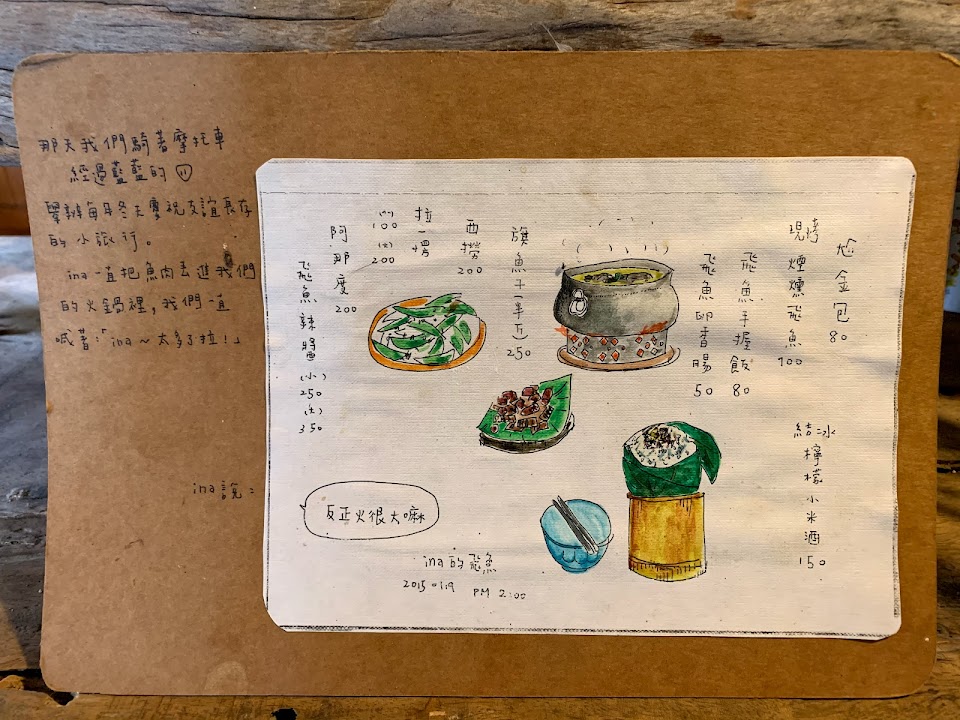 那天我們騎著摩托車
經過藍藍的
舉辦每年冬天慶祝友誼長存
的小旅行。
ina一直把魚肉丟進我們
的火鍋裡，我們一直
喊著:「ina～太多了拉!」
ina說:
尬金包 80
現烤煙燻飛魚 100
飛魚手握飯 80
飛魚卵香腸 50
旗魚十(半斤) 250
西撈 200
拉一愣
(小) 100 (大) 200
阿那度 200
飛魚辣醬 (小) 250 (大) 350
結冰檸檬小米酒 150
反正火很大嘛
ina的飛魚
2015 01.19 PM 2:00